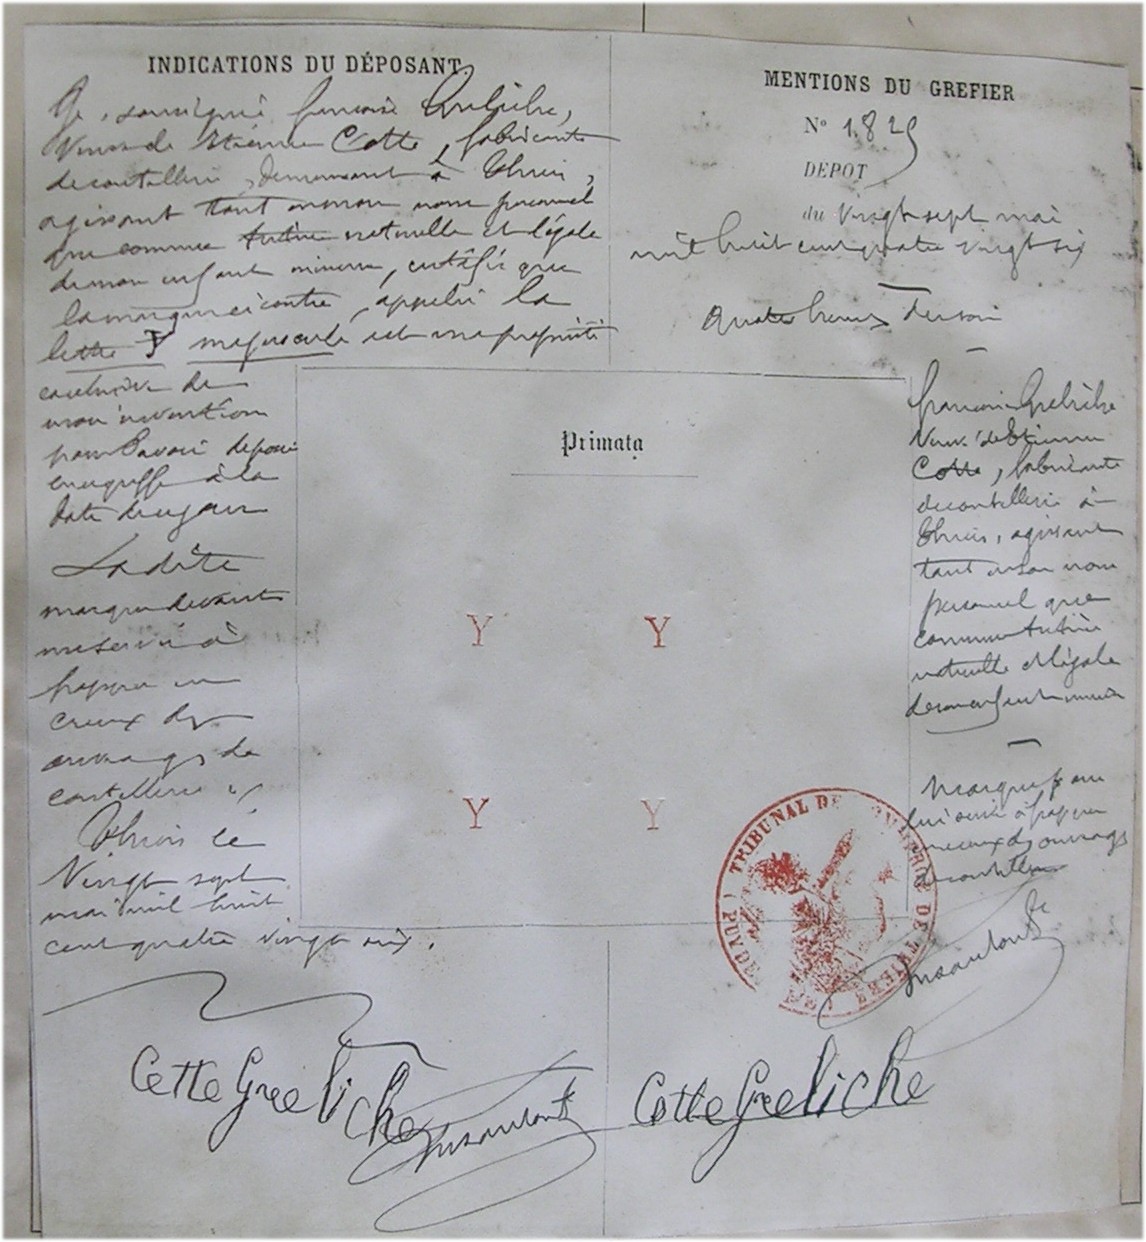 INDICATIONS DU DÉPOSANT
Je, soussigné françoise Greliche,
Veuve de Etienne Cotte, fabricante
de coutellerie, demeurant à Thiers,
agissant tant en mon nom personnel
que comme tutrice naturelle et légale
de mon enfant mineur, certifie que
la marque ci contre, appelée la
lettre Y majuscule est ma propriété
exclusive de
mon invention
pour l'avoir déposé
au greffe à la
date de ce jour
La dite
marque devant
me servir à
frapper en
creux des
ouvrages de
coutellerie
Thiers le
Vingt sept
mai mil huit
cent quatre vingt six.
MENTIONS DU GREFIER
N° 1829
DEPOT
du Vingt sept mai
mil huit cent quatre vingt six
Quatre heures du soir
Primata
Y Y
Y Y
françoise Greliche
Veuve de Etienne
Cotte, fabricante
de coutellerie à
Thiers, agissant
tant en son nom
personnel que
comme tutrice
naturelle et légale
de son enfant mineur
Marque pour
lui servir à frapper
en creux des ouvrages
de coutellerie
TRIBUNAL DE COMMERCE DE THIERS
Cotte Greliche
Cotte Greliche